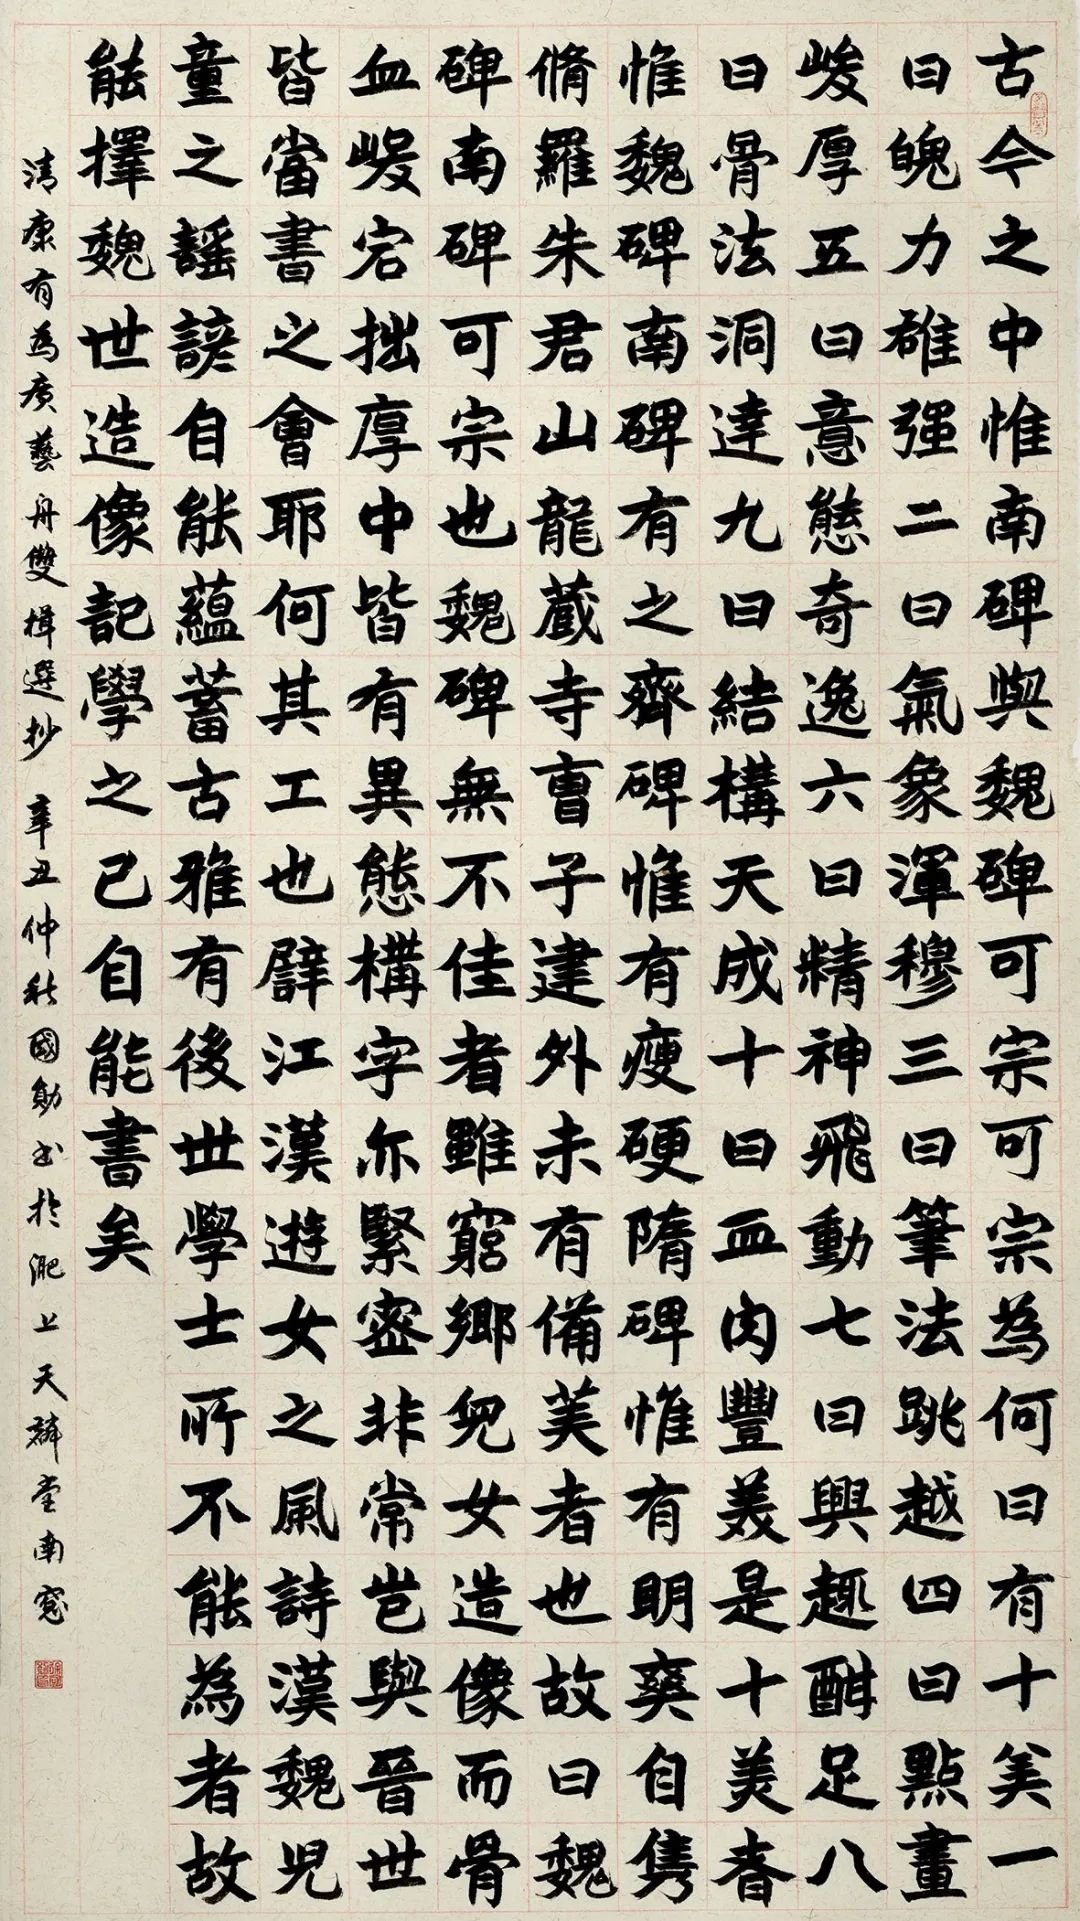 古今之中惟南碑與魏碑可宗可宗為何曰有十美一
曰魄力雄强二曰氣象渾穆三曰筆法跳越四曰點畫
峻厚五曰意態奇逸六曰精神飛動七曰興趣酣足八
曰骨法洞達九曰結構天成十曰血肉豐美是十美者
惟魏碑南碑有之齊碑惟有瘦硬隋碑惟有明爽自雋
脩羅朱君山龍藏寺曹子建外未有備美者也故曰魏
碑南碑可宗也魏碑無不佳者雖窮鄉兒女造像而骨
血峻宕拙厚中皆有異態構字亦緊密非常豈與晉世
皆當書之會耶何其工也譬江漢遊女之風詩漢魏兒
童之謠諺自能蘊蓄古雅有後世學士所不能為者故
能擇魏世造像記學之已自能書矣
清康有為廣藝舟雙楫選抄 辛丑仲秋國勛書於淝上天籟堂南窗